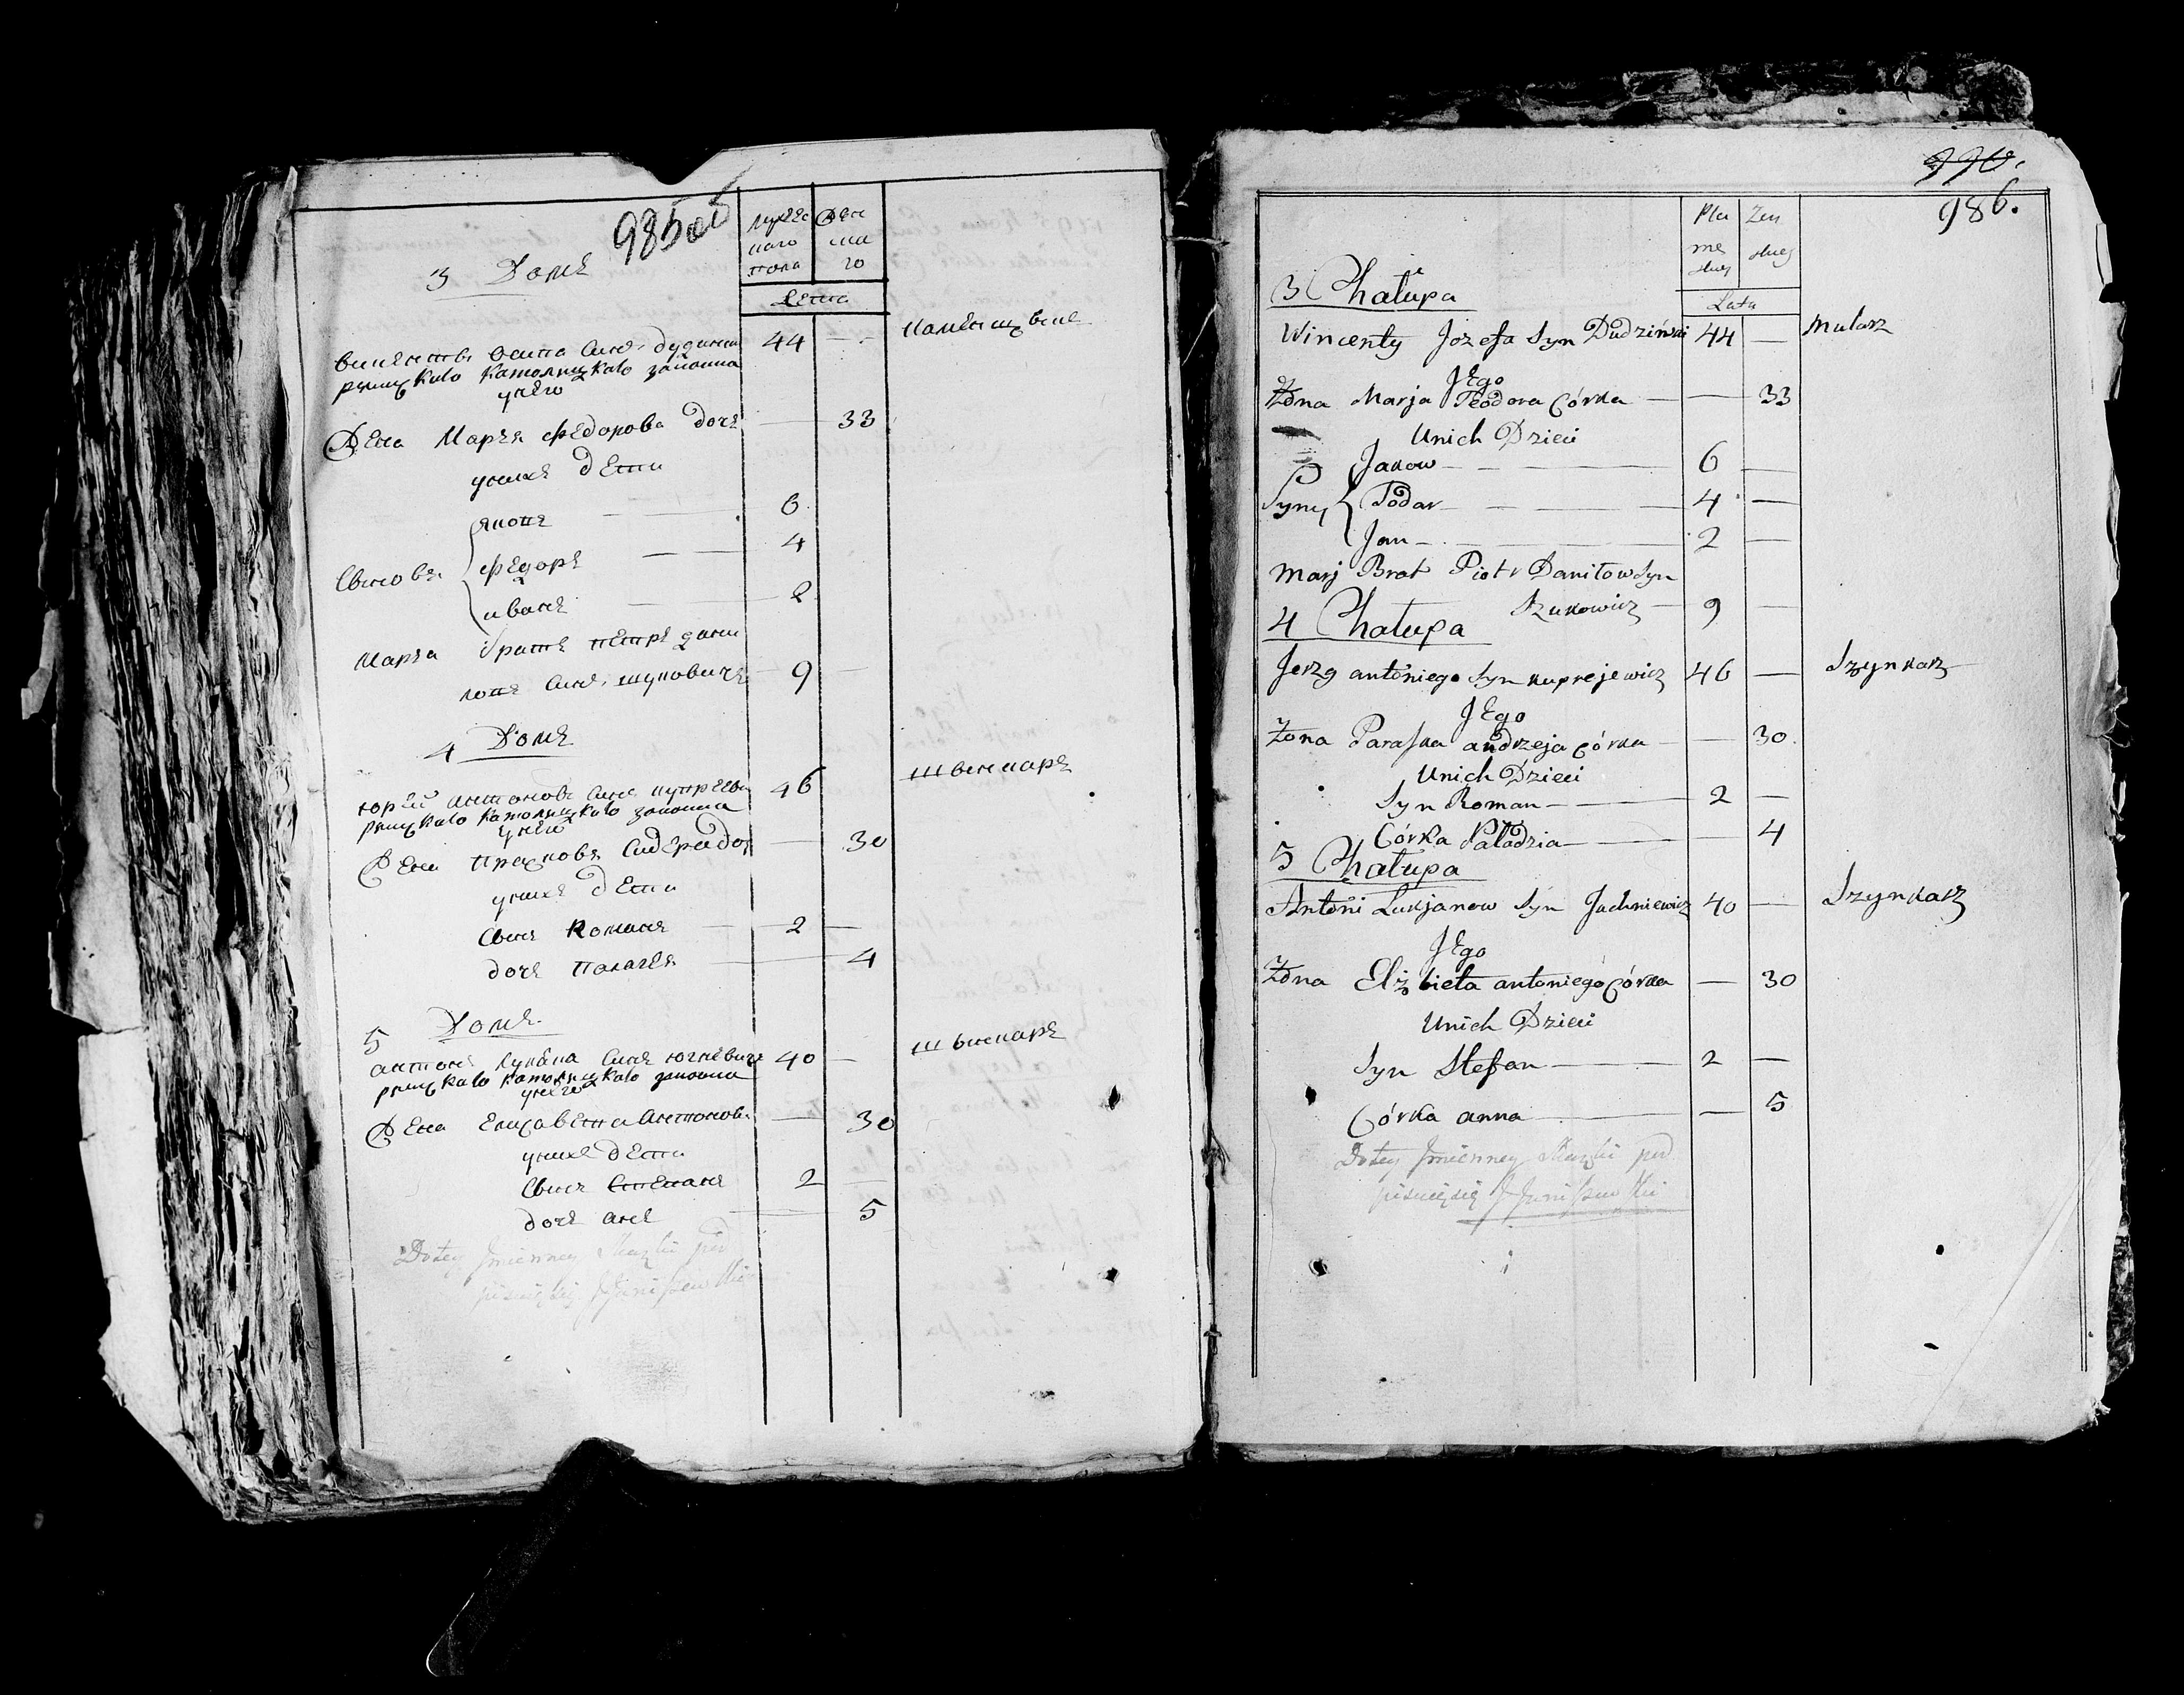 985об
мужес
каго
пола
Жен
ска
го
Лета
3 Домъ
винентъ осипа синъ дудзинъ
римскаго католицкаго закона
44
каменщикъ
у него
Жена Марья федорова дочь — 33
у нихъ дети
якопъ — 6
Сыновя
федоръ — 4
иванъ — 2
Марья братъ петръ дани
лопъ синъ жуковичъ — 9 —
4 Домъ
юрей антоновъ синъ купрееви
46
шынкаръ
римскаго католицкаго закона
у него
Жена — 30
у нихъ дети
Сынъ Романъ — 2 —
дочь палагея — 4
5 Домъ
антонъ лукяна синъ юхневичъ 40 — шынкаръ
римскаго католицкаго закона
у него
Жена Елизавета антонова — 30
у нихъ дети
Сынъ Степанъ 2 —
дочь анна — 5
Dotey Jmienney Skazki pod
pisuięsię
990.
986.
Plci
me
skiey
Zen
skiey
Lata
3 Chałupa
Wincenty Jozefa Syn Dudziński 44 — Mularz
JEgo
Żona Marja Teodora Córka — — 33
Unich Dzieci
Jakow — 6 —
Syny
Todor — 4 —
Jan — 2 —
Marj Brat Piotr Daniłow Syn
Żukowicz — 9 —
4 Chałupa
Jerzy antoniego Syn kuprejewicz 46 — Szynkarz
JEgo
Żona Paraska andrzeja Córka — — 30
Unich Dzieci
Syn Roman — 2 —
Córka Paładzia — — 4
5 Chałupa
Antoni Lukjanow Syn Juchniewicz 40 — Szynkarz
JEgo
Żona Elżbieta antoniego Córka — 30
Unich Dzieci
Syn Stefan — 2 —
Córka anna — — 5
Dotey Jmienney Skazki pod
pisuięsię